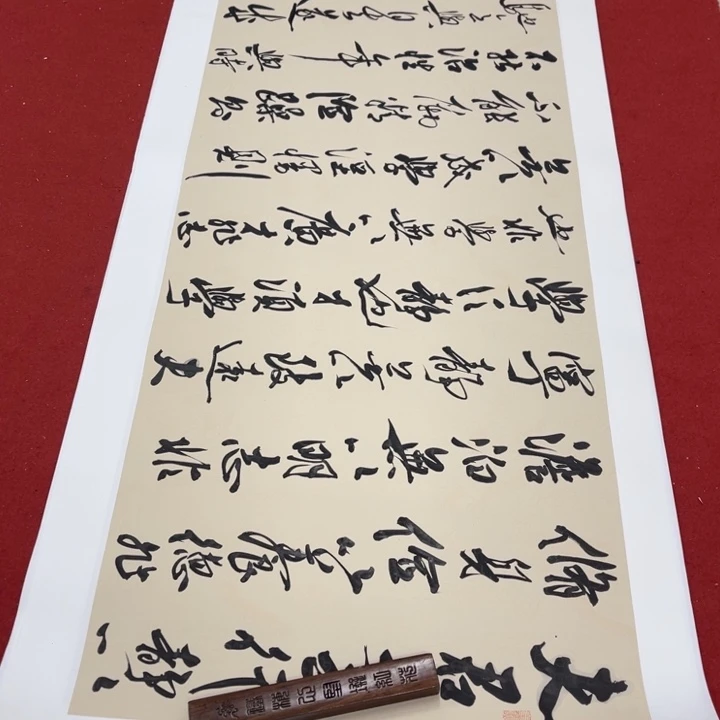 夫君行靜以
脩身儉以養德非
澹泊無以明志非
寧靜无以致遠夫
學須靜也才須學
也非學無以廣才非志
无以成學淫慢則
不能勵精險躁則
不能冶性年與時
馳意與日去遂成